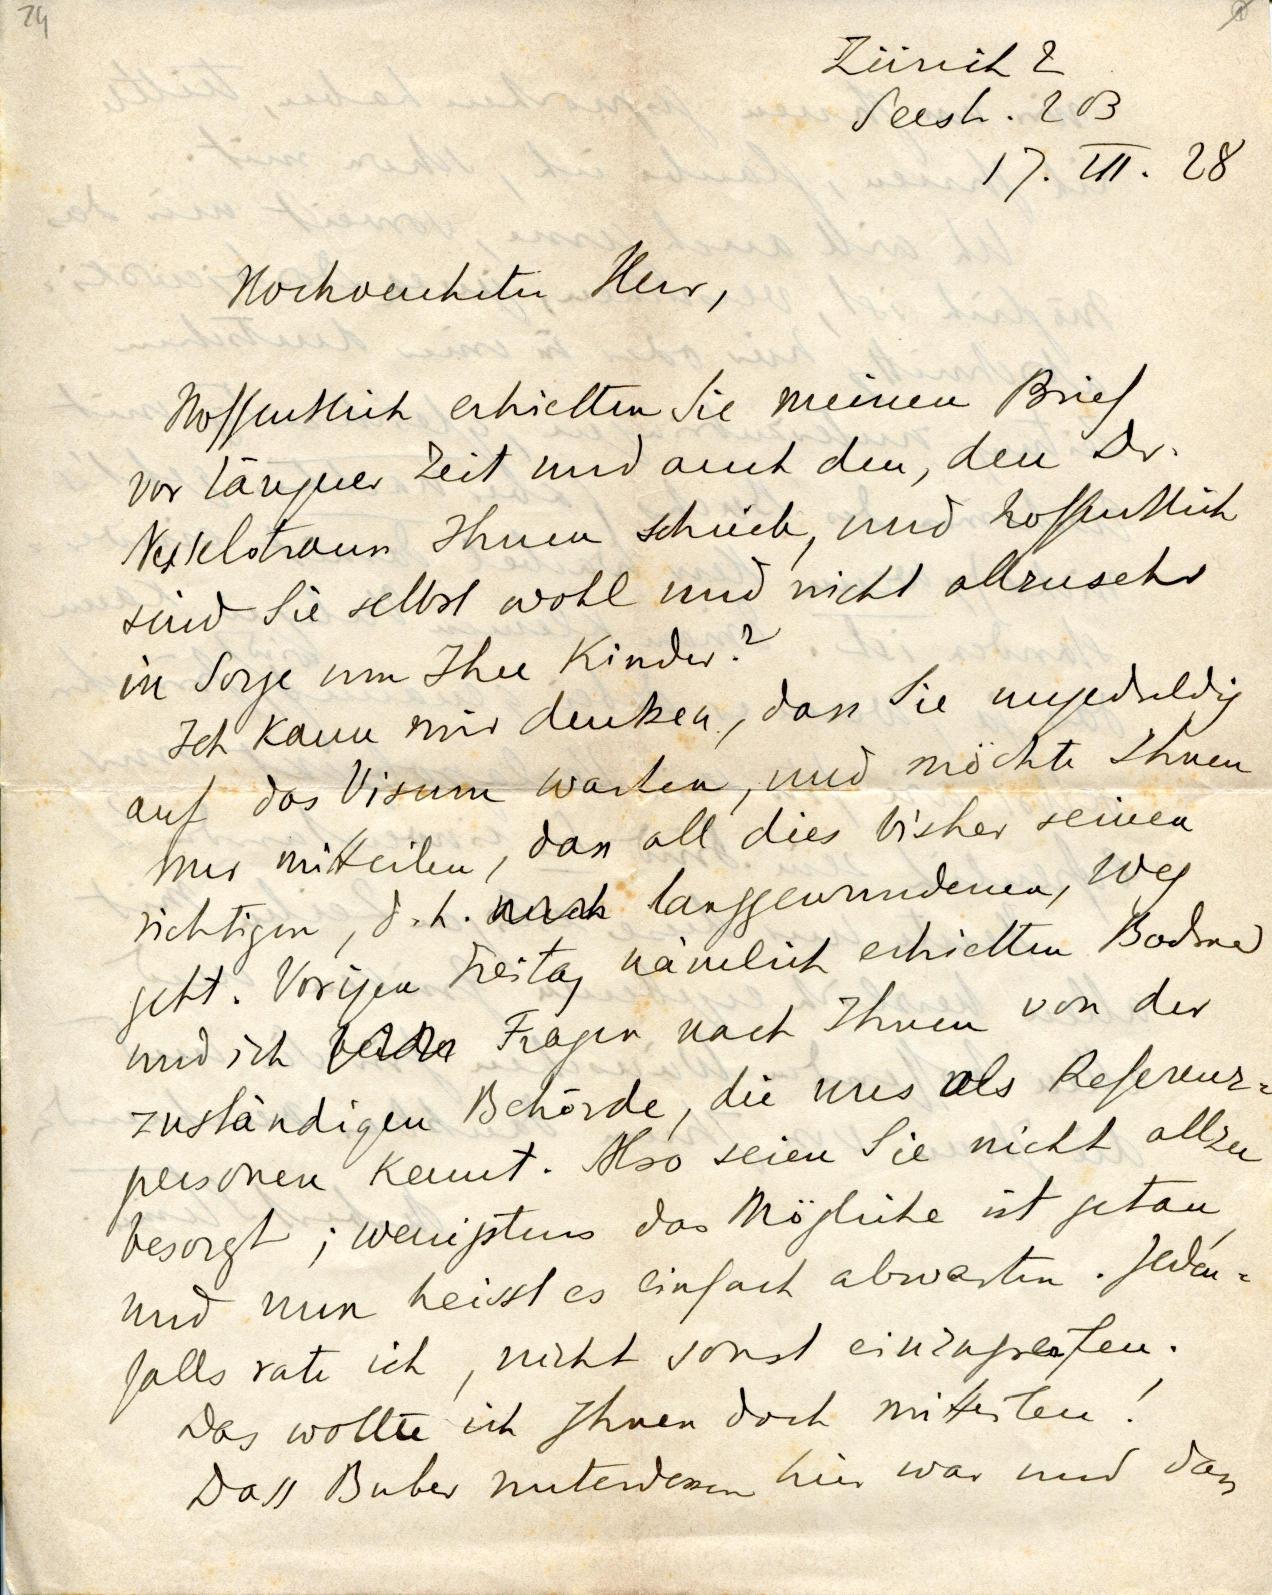 24
Zürich 2
Seestr. 203
17. III. 28
Hochverehrter Herr,
Hoffentlich erhielten Sie meinen Brief
vor längerer Zeit und auch den, den Dr.
Ihnen schrieb, und hoffentlich
sind Sie selbst wohl und nicht allzusehr
in Sorge um Ihre Kinder?
Ich kann mir denken, dass Sie ungeduldig
auf das Visum warten, und möchte Ihnen
nur mitteilen, dass all dies bisher seinen
richtigen, d.h. langgewundenen, Weg
geht. Vorigen Freitag nämlich erhielten Bodmer
und ich Fragen nach Ihnen von der
zuständigen Behörde, die uns als Referenz=
personen kennt. Also seien Sie nicht allzu
besorgt; wenigstens das Mögliche ist getan,
und nun heisst es einfach abwarten. Jeden=
falls rate ich, nicht sonst einzugreifen.
Das wollte ich Ihnen doch mitteilen!
Dass Buber unterdessen hier war und dass